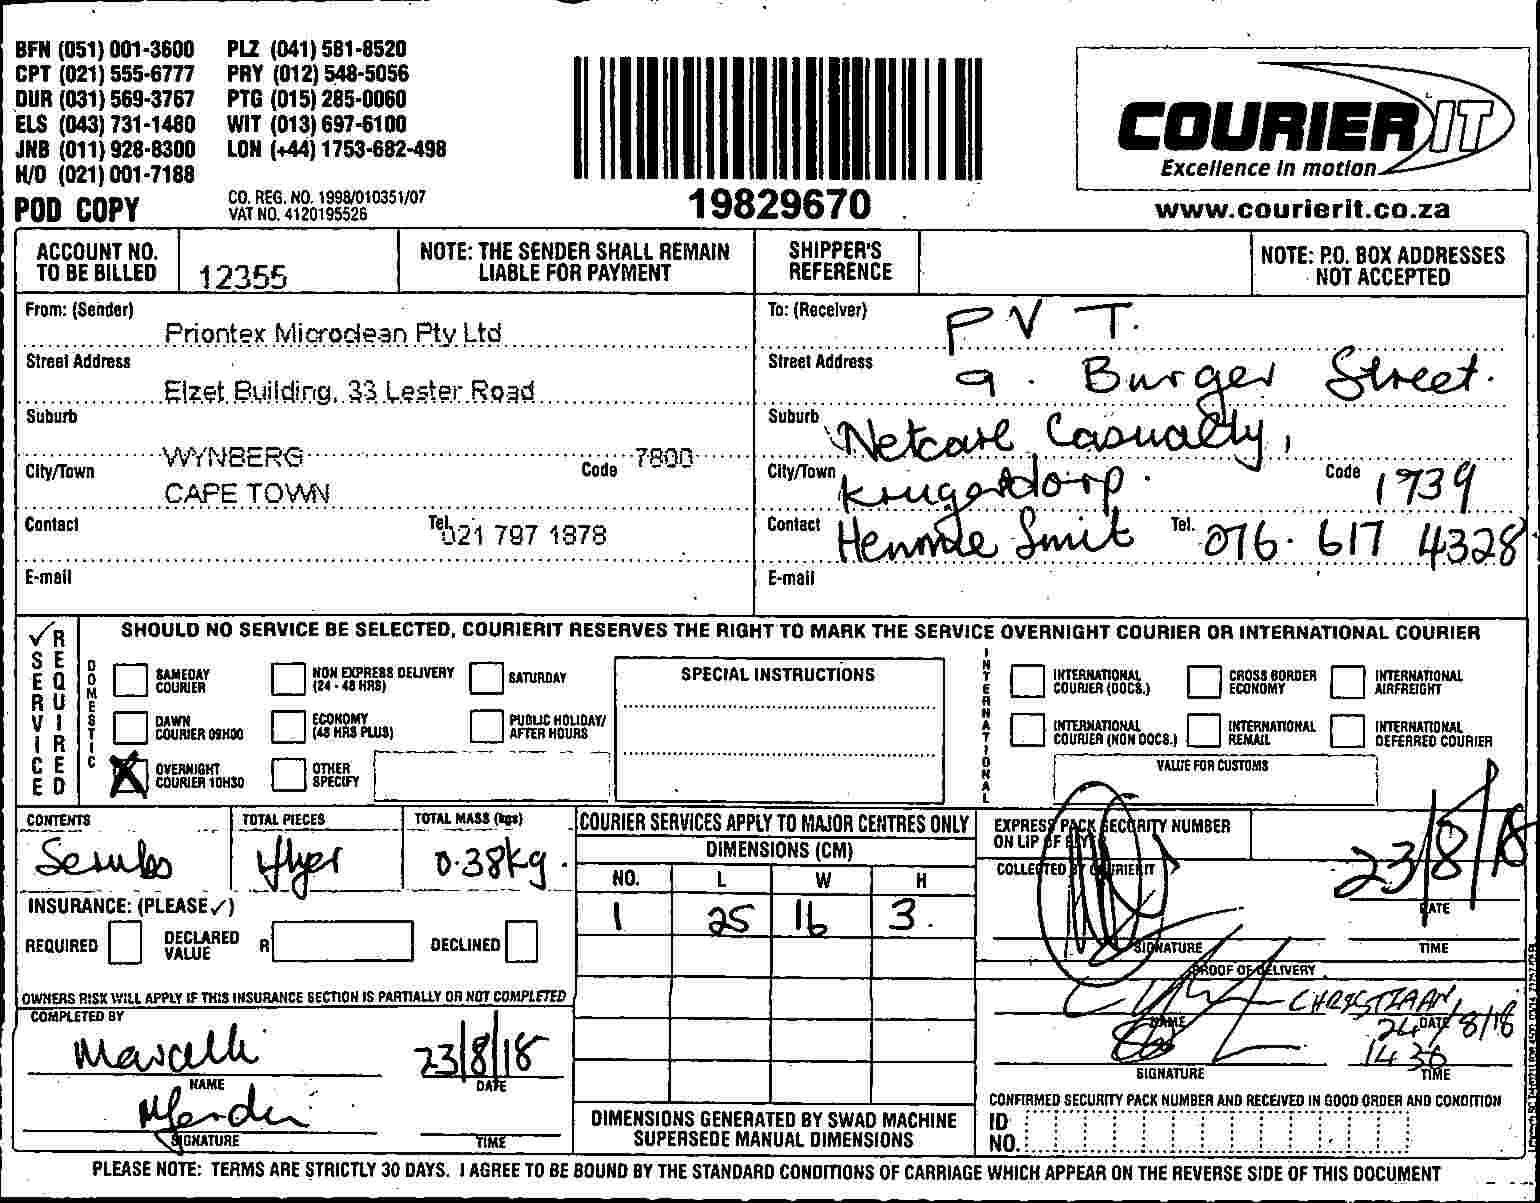 BFN (051) 001-3600 PLZ (041) 581-8520
CPT (021) 555-6777 PRY (012) 548-5056
DUR (031) 569-3767 PTG (015) 285-0060
ELS (043) 731-1480 WIT (013) 697-6100
JNB (011) 928-8300 LON (+44) 1753-682-498
H/O (021) 001-7188
CO. REG. NO. 1998/010351/07
VAT NO. 4120195526
POD COPY
19829670
COURIER IT
Excellence in motion
www.courierit.co.za
ACCOUNT NO. TO BE BILLED 12355
NOTE: THE SENDER SHALL REMAIN LIABLE FOR PAYMENT
SHIPPER'S REFERENCE
NOTE: P.O. BOX ADDRESSES NOT ACCEPTED
From: (Sender)
Priontex Microclean Pty Ltd
Street Address
Elzet Building, 33 Lester Road
Suburb
WYNBERG
City/Town
Code 7800
CAPE TOWN
Contact
Tel. 021 797 1878
E-mail
To: (Receiver) P V T.
Street Address 9. Burger Street.
Suburb Netcare Casualty,
City/Town Krugersdorp. Code 1739
Contact Hennie Smit Tel. 076. 617 4328
E-mail
✓ SERVICE REQUIRED
SHOULD NO SERVICE BE SELECTED, COURIERIT RESERVES THE RIGHT TO MARK THE SERVICE OVERNIGHT COURIER OR INTERNATIONAL COURIER
DOMESTIC
SAMEDAY COURIER
NON EXPRESS DELIVERY (24 - 48 HRS)
SATURDAY
DAWN COURIER 09H00
ECONOMY (48 HRS PLUS)
PUBLIC HOLIDAY/ AFTER HOURS
X OVERNIGHT COURIER 10H30
OTHER SPECIFY
SPECIAL INSTRUCTIONS
INTERNATIONAL
INTERNATIONAL COURIER (DOCS.)
CROSS BORDER ECONOMY
INTERNATIONAL AIRFREIGHT
INTERNATIONAL COURIER (NON DOCS.)
INTERNATIONAL REMAIL
INTERNATIONAL DEFERRED COURIER
VALUE FOR CUSTOMS
CONTENTS
Scrubs
TOTAL PIECES
flyer
TOTAL MASS (kgs)
0.38kg.
INSURANCE: (PLEASE ✓)
REQUIRED
DECLARED VALUE R
DECLINED
OWNERS RISK WILL APPLY IF THIS INSURANCE SECTION IS PARTIALLY OR NOT COMPLETED
COMPLETED BY
23/8/18
NAME
DATE
SIGNATURE
TIME
COURIER SERVICES APPLY TO MAJOR CENTRES ONLY
DIMENSIONS (CM)
NO. L W H
1 25 16 3.
DIMENSIONS GENERATED BY SWAD MACHINE SUPERSEDE MANUAL DIMENSIONS
EXPRESS PACK SECURITY NUMBER
ON LIP OF FLYER
COLLECTED BY COURIERIT
23/8/18
DATE
SIGNATURE
TIME
PROOF OF DELIVERY
CHRISTIAAN
NAME
24/8/18
DATE
14 36
SIGNATURE
TIME
CONFIRMED SECURITY PACK NUMBER AND RECEIVED IN GOOD ORDER AND CONDITION
ID NO.
PLEASE NOTE: TERMS ARE STRICTLY 30 DAYS. I AGREE TO BE BOUND BY THE STANDARD CONDITIONS OF CARRIAGE WHICH APPEAR ON THE REVERSE SIDE OF THIS DOCUMENT